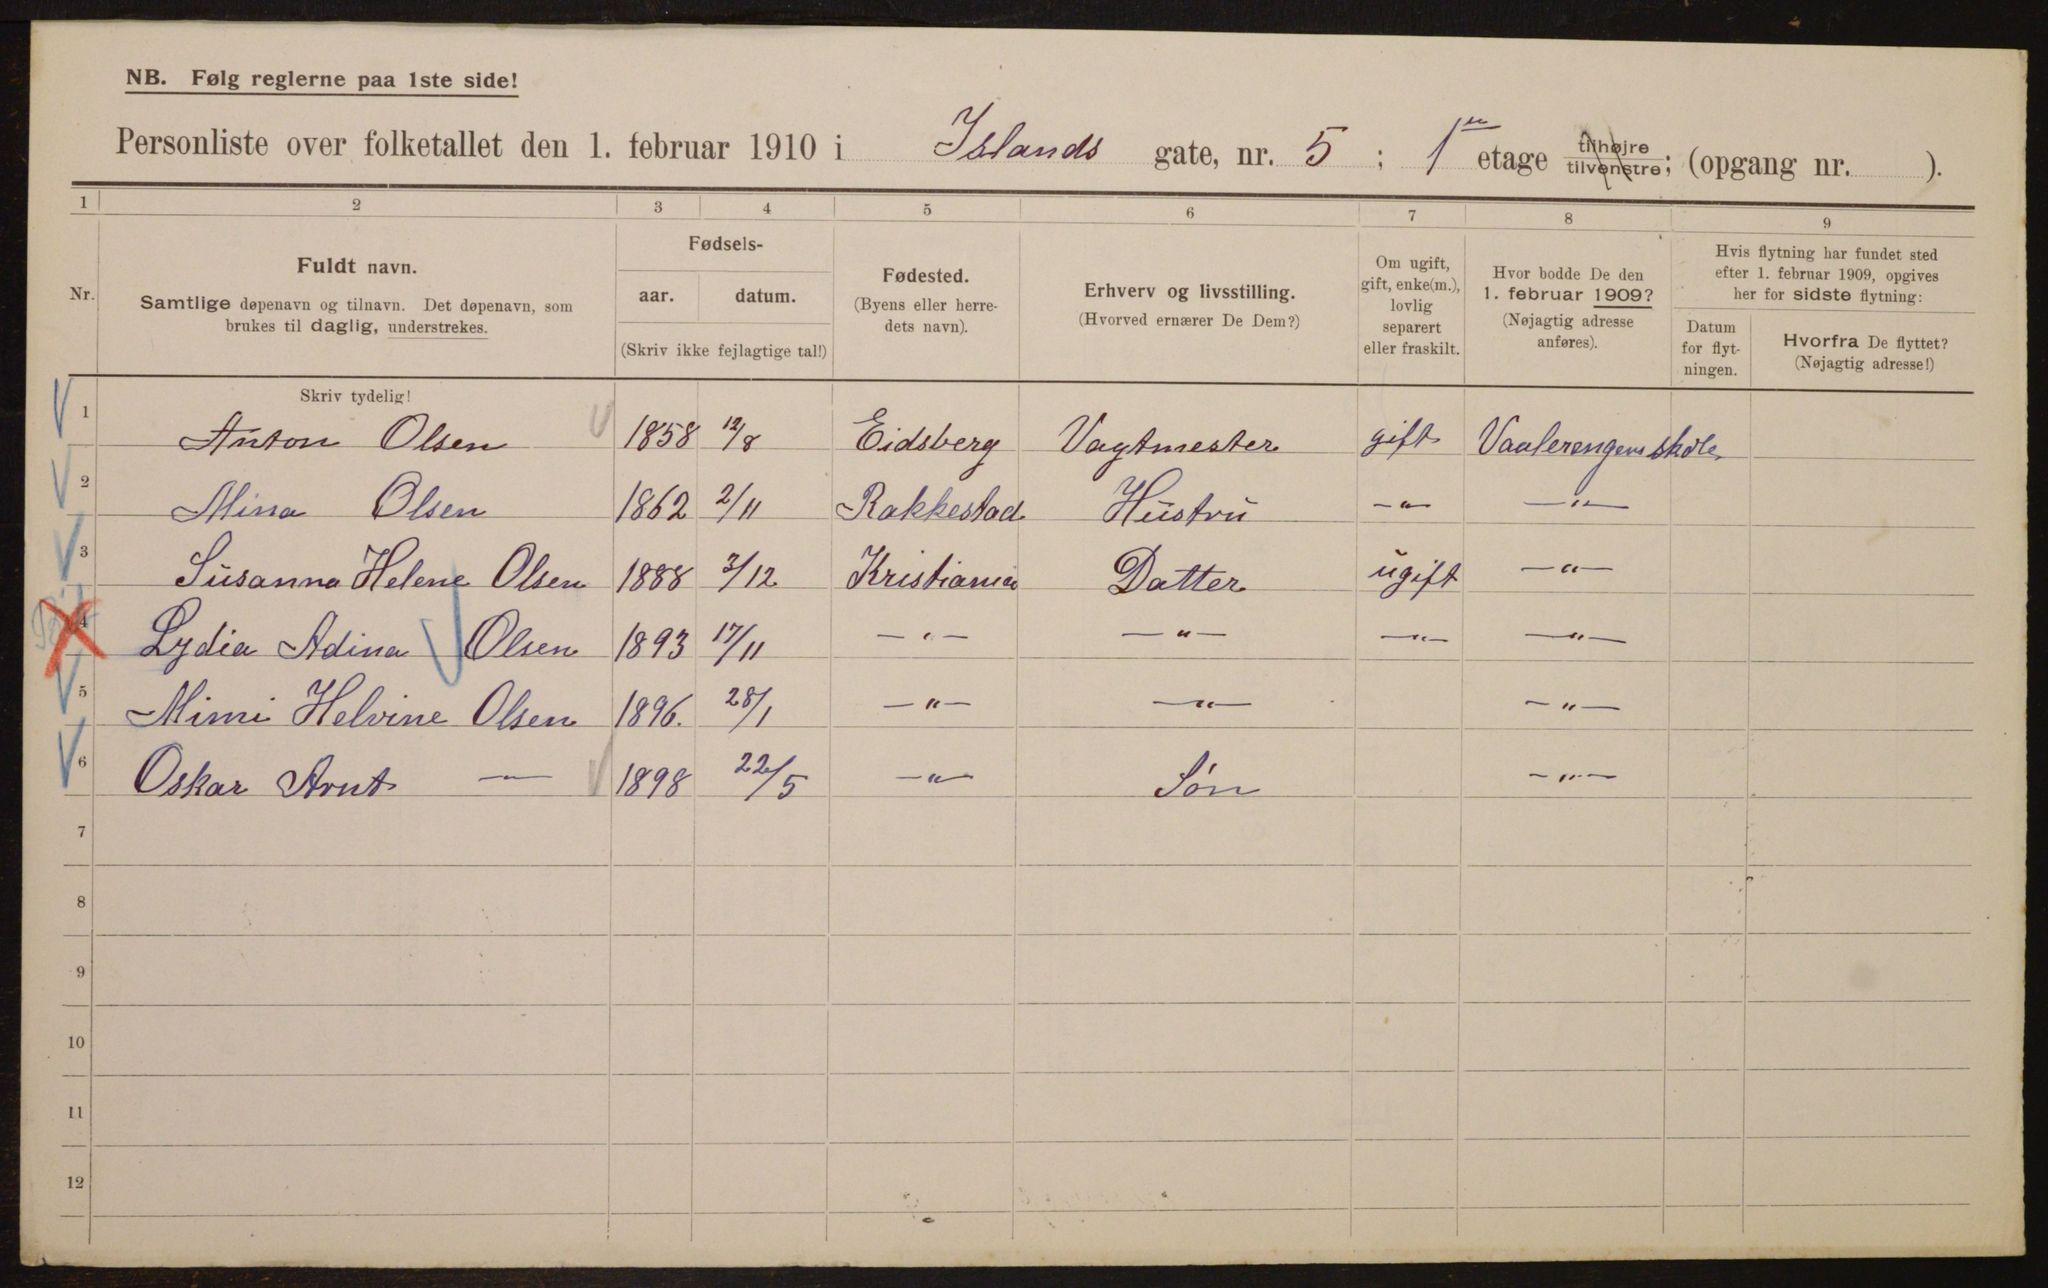 NB. Følg reglerne paa 1ste side!
Personliste over folketallet den 1. februar 1910 i Islands gate, nr. 5 ; 1ste etage tilhøjre tilvenstre; (opgang nr. ).
1 2 3 4 5 6 7 8 9
Nr.
Fuldt navn.
Samtlige døpenavn og tilnavn. Det døpenavn, som
brukes til daglig, understrekes.
Skriv tydelig!
Fødsels-
aar. datum.
(Skriv ikke fejlagtige tal!)
Fødested.
(Byens eller herre-
dets navn).
Erhverv og livsstilling.
(Hvorved ernærer De Dem?)
Om ugift,
gift, enke(m.),
lovlig
separert
eller fraskilt.
Hvor bodde De den
1. februar 1909?
(Nøjagtig adresse
anføres).
Hvis flytning har fundet sted
efter 1. februar 1909, opgives
her for sidste flytning:
Datum
for flyt-
ningen.
Hvorfra De flyttet?
(Nøjagtig adresse!)
1 Anton Olsen 1858 12/8 Eidsberg Vagtmester gift Vaalerengens skole
2 Mina Olsen 1862 2/11 Rakkestad Hustru —"— —"—
3 Susanna Helene Olsen 1888 3/12 Kristiania Datter ugift —"—
4 Lydia Adina Olsen 1893 17/11 —"— —"— —"— —"—
5 Mimi Helvine Olsen 1896. 28/1 —"— —"— —"—
6 Oskar Arnt —"— 1898 22/5 —"— Søn —"—
7
8
9
10
11
12